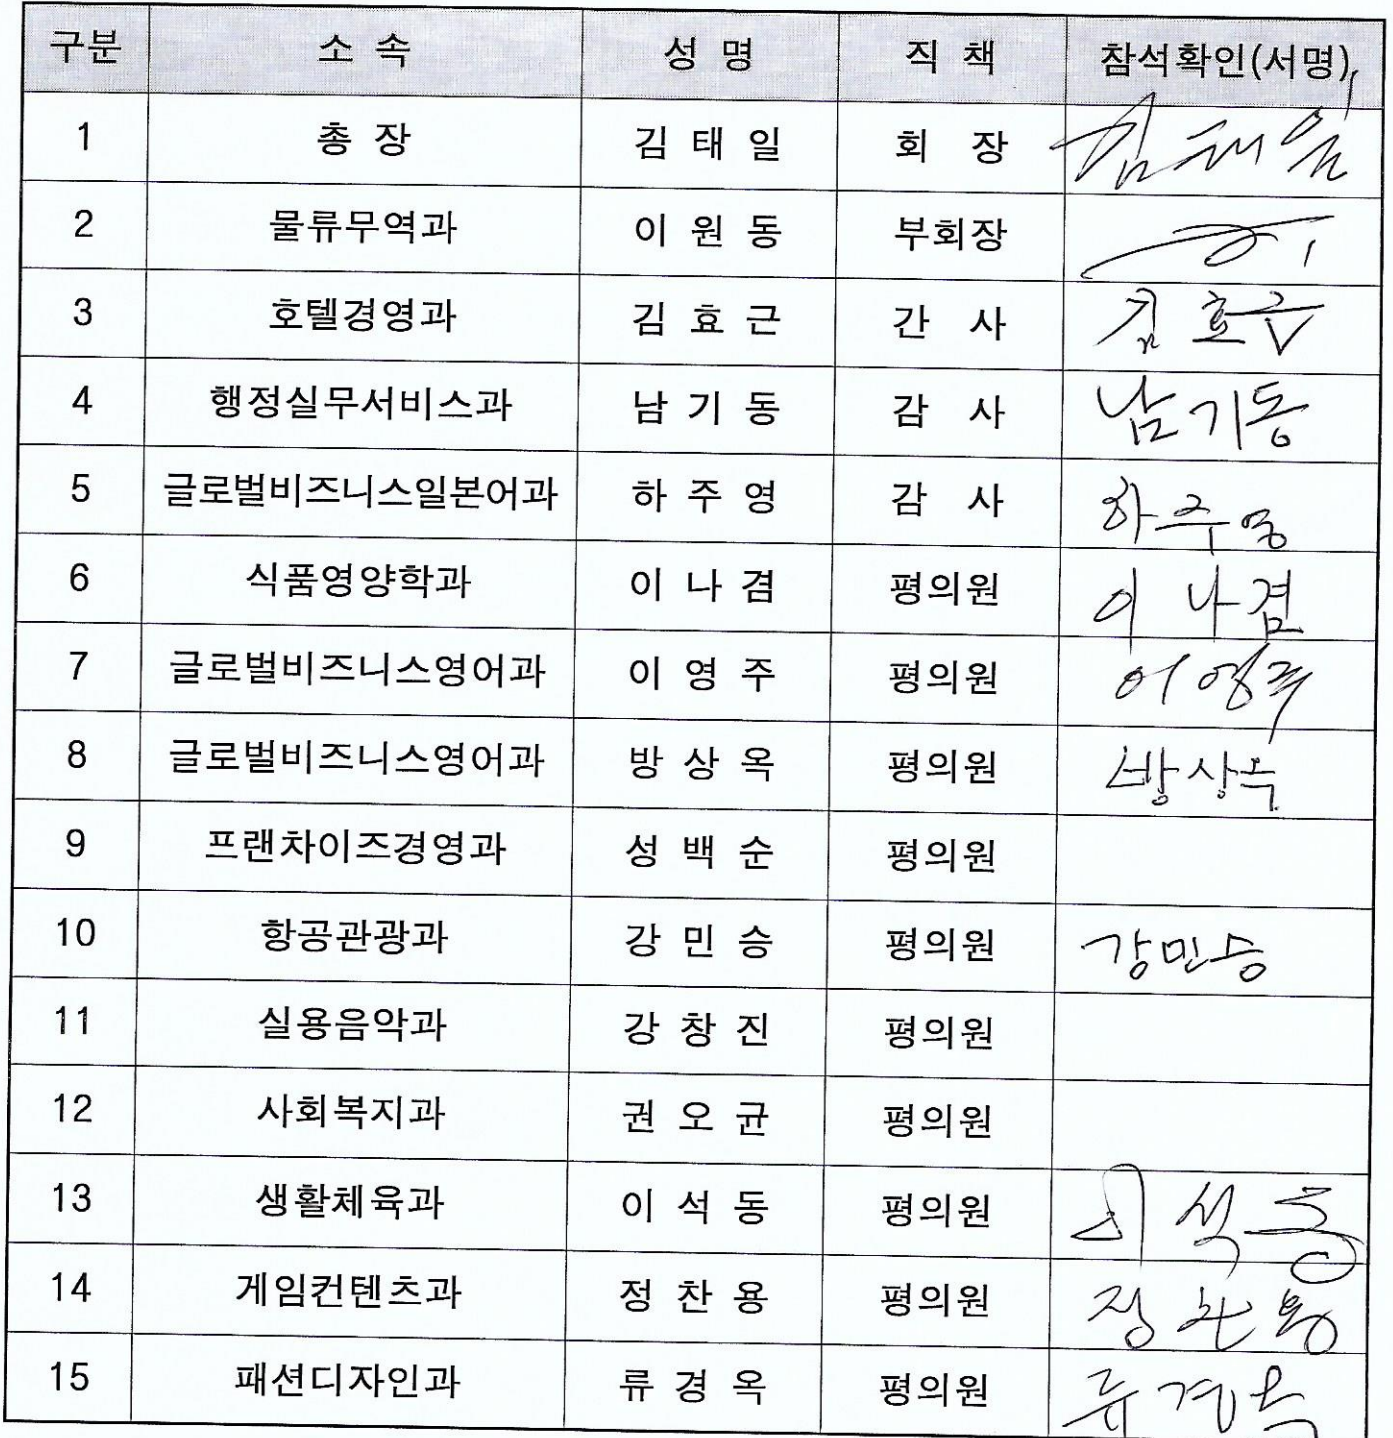 구분 소 속 성 명 직 책 참석확인(서명)
1 총 장 김 태 일 회 장 김태일
2 물류무역과 이 원 동 부회장
3 호텔경영과 김 효 근 간 사 김효근
4 행정실무서비스과 남 기 동 감 사 남기동
5 글로벌비즈니스일본어과 하 주 영 감 사 하주영
6 식품영양학과 이 나 겸 평의원 이나겸
7 글로벌비즈니스영어과 이 영 주 평의원 이영주
8 글로벌비즈니스영어과 방 상 옥 평의원 방상옥
9 프랜차이즈경영과 성 백 순 평의원
10 항공관광과 강 민 승 평의원 강민승
11 실용음악과 강 창 진 평의원
12 사회복지과 권 오 균 평의원
13 생활체육과 이 석 동 평의원 이석동
14 게임컨텐츠과 정 찬 용 평의원 정찬용
15 패션디자인과 류 경 옥 평의원 류경옥